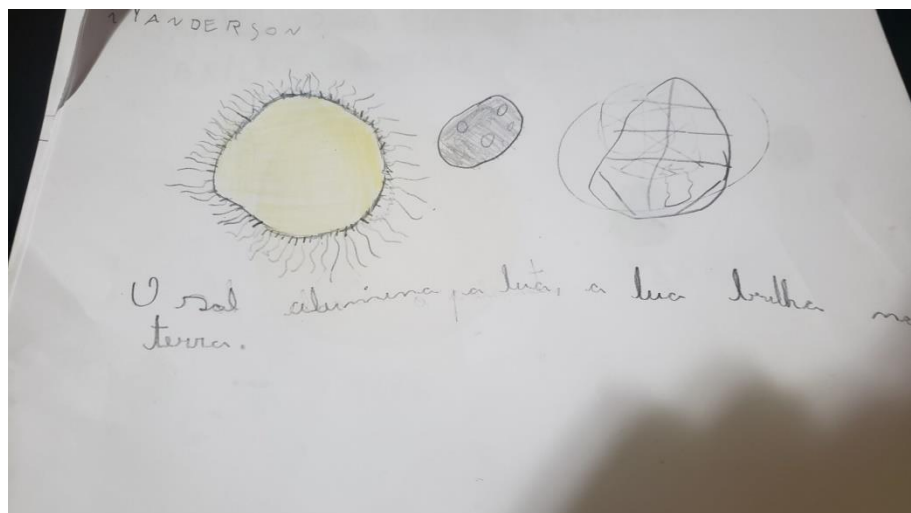 YANDERSON
O sol alumina, a lua, a lua brilha na
terra.